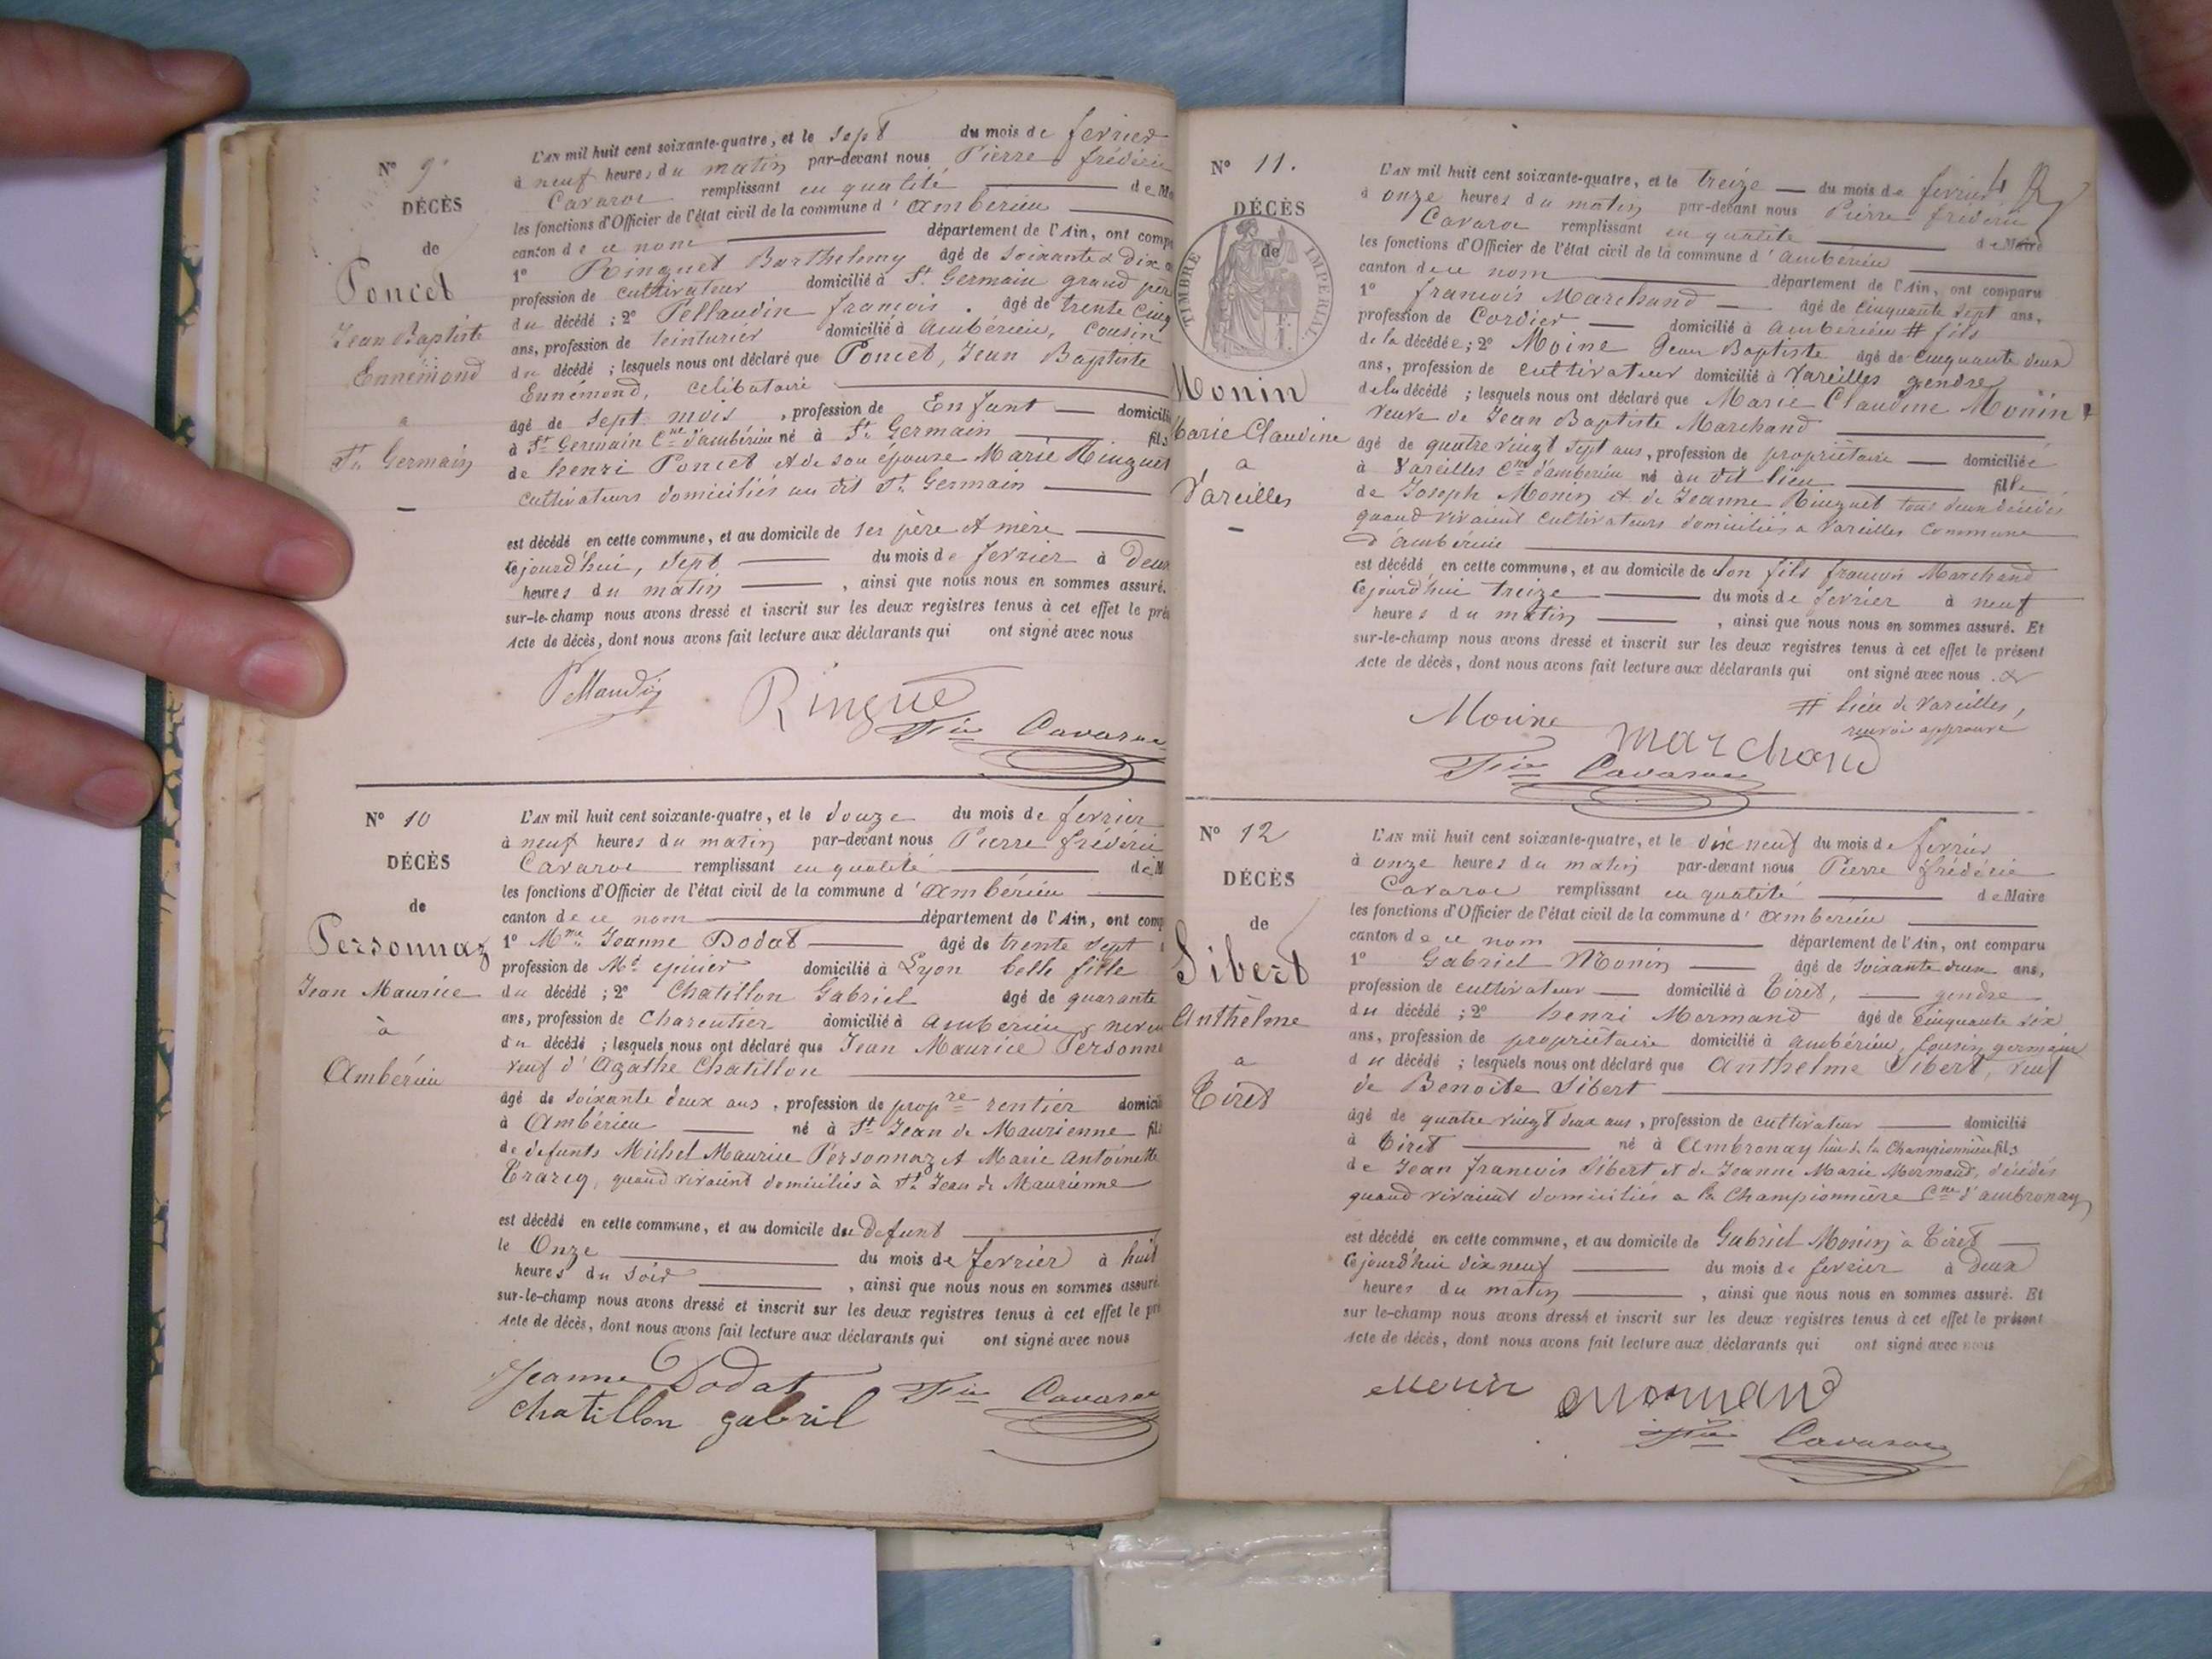 N° 9.
DÉCÈS
de
Poncet
Jean Baptiste
Ennémond
a
St. Germain
L'AN mil huit cent soixante-quatre, et le sept du mois de fevrier
à neuf heures du matin par-devant nous Pierre frédéric
Cavaroc remplissant en qualité de
les fonctions d'Officier de l'état civil de la commune d'ambérieu
canton de ce nom département de l'Ain, ont
1° Ringuet Barthelemy âgé de soixante & dix
profession de cultivateur domicilié à St. Germain grand
du décédé ; 2° Pellaudin françois . âgé de trente cinq
ans, profession de teinturier domicilié à ambérieu, cousin
du décédé ; lesquels nous ont déclaré que Poncet, Jean Baptiste
Ennémond, célibataire
âgé de sept mois , profession de Enfant
à St Germain Cne d'ambérieu né à St. Germain fils
de henri Poncet et de son épouse Marie Ringuet
cultivateurs domiciliés au dit St. Germain
est décédé en cette commune, et au domicile de ses père et mère
cejourd'hui, sept du mois de fevrier à deux
heures du matin , ainsi que nous nous en sommes assuré.
sur-le-champ nous avons dressé et inscrit sur les deux registres tenus à cet effet le
Acte de décès, dont nous avons fait lecture aux déclarants qui ont signé avec nous
Pellaudin Ringué
Fic Cavaroc
N° 10
DÉCÈS
de
Personnaz
Jean Maurice
à
Ambérieu
L'AN mil huit cent soixante-quatre, et le douze du mois de fevrier
à neuf heures du matin par-devant nous Pierre frédéric
Cavaroc remplissant en qualité de
les fonctions d'Officier de l'état civil de la commune d'ambérieu
canton de ce nom département de l'Ain, ont
1° Mme Jeanne Dodat âgé de trente sept
profession de Md epicier domicilié à Lyon belle fille
du décédé ; 2° Chatillon Gabriel âgé de quarante
ans, profession de Charentier domicilié à ambérieu neveu
du décédé ; lesquels nous ont déclaré que Jean Maurice
veuf d'Agathe Chatillon
âgé de soixante deux ans , profession de propre rentier
à Ambérieu né à St Jean de Maurienne
de defunts Michel Maurice Personnaz et Marie antoinette
quand vivaient domiciliés à St Jean de Maurienne
est décédé en cette commune, et au domicile du defunt
le Onze du mois de fevrier à huit
heures du soir , ainsi que nous nous en sommes assuré
sur-le-champ nous avons dressé et inscrit sur les deux registres tenus à cet effet le
Acte de décès, dont nous avons fait lecture aux déclarants qui ont signé avec nous
Jeanne Dodat Fic Cavaroc
chatillon gabril
N° 11.
DÉCÈS
de
TIMBRE IMPERIAL
Monin
Marie Claudine
a
Vareilles
L'AN mil huit cent soixante-quatre, et le treize du mois de fevrier
à onze heures du matin par-devant nous Pierre frédéric
Cavaroc remplissant en qualité de Maire
les fonctions d'Officier de l'état civil de la commune d'ambérieu
canton de ce nom département de l'Ain, ont comparu
1° françois Marchand âgé de cinquante sept ans,
profession de Cordier domicilié à ambérieu # fils
de la décédée ; 2° Moine Jean Baptiste âgé de cinquante deux
ans, profession de cultivateur domicilié à Vareilles gendre
de la décédé ; lesquels nous ont déclaré que Marie Claudine Monin
veuve de Jean Baptiste Marchand
âgé de quatre vingt sept ans, profession de propriétaire domiciliée
à Vareilles Cne d'ambérieu né au dit lieu fille
de Joseph Monin et de Jeanne Ringuet tous deux décédés
quand vivaient cultivateurs domiciliés a Vareilles Commune
d'ambérieu
est décédé en cette commune, et au domicile de son fils françois Marchand
cejourd'hui treize du mois de fevrier à neuf
heures du matin , ainsi que nous nous en sommes assuré. Et
sur-le-champ nous avons dressé et inscrit sur les deux registres tenus à cet effet le présent
Acte de décès, dont nous avons fait lecture aux déclarants qui ont signé avec nous
# lieu de Vareilles,
renvoi approuvé
Moine marchand
Fic Cavaroc
N° 12
DÉCÈS
de
Sibert
Anthelme
a
Tiret
L'AN mil huit cent soixante-quatre, et le dix neuf du mois de fevrier
à onze heures du matin par-devant nous Pierre frédéric
Cavaroc remplissant en qualité de Maire
les fonctions d'Officier de l'état civil de la commune d'ambérieu
canton de ce nom département de l'Ain, ont comparu
1° Gabriel Monin âgé de soixante deux ans,
profession de cultivateur domicilié à Tiret, gendre
du décédé ; 2° henri Mermand âgé de cinquante six
ans, profession de propriétaire domicilié à ambérieu, cousin germain
du décédé ; lesquels nous ont déclaré que Anthelme Sibert, veuf
de Benoîte Sibert
âgé de quatre vingt deux ans , profession de cultivateur domicilié
à Tiret né à Ambronay lieu de la Championnière fils
de Jean françois Sibert et de Jeanne Marie Mermand, décédés
quand vivaient domiciliés a la Championnière Cne d'ambronay
est décédé en cette commune, et au domicile de Gabriel Monin à Tiret
cejourd'hui dix neuf du mois de fevrier à deux
heures du matin , ainsi que nous nous en sommes assuré. Et
sur le-champ nous avons dressé et inscrit sur les deux registres tenus à cet effet le présent
Acte de décès, dont nous avons fait lecture aux déclarants qui ont signé avec nous
Monin Mermand
Fic Cavaroc